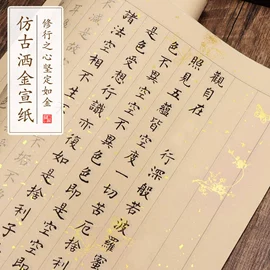 仿古洒金宣纸
修行之心坚定如金
觀自在
行深般若波羅蜜
照見五蘊皆空度一切苦厄捨利子
色不異空空不異色色即是空空即
是色受想行識亦復如是捨利子
諸法空相不生不